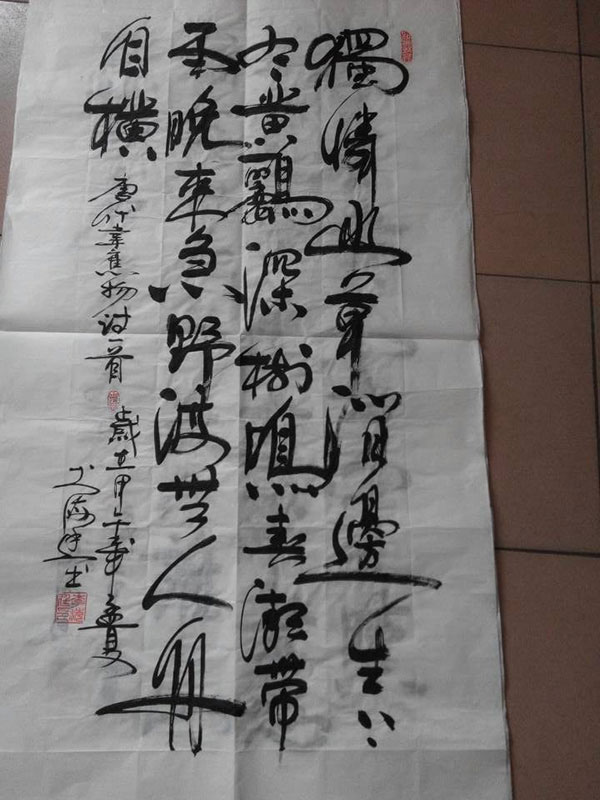 獨憐幽草澗邊生上
有黃鸝深樹鳴春潮帶
雨晚來急野渡無人舟
自橫
唐代韋應物詩一首 歲在甲午年夏
書